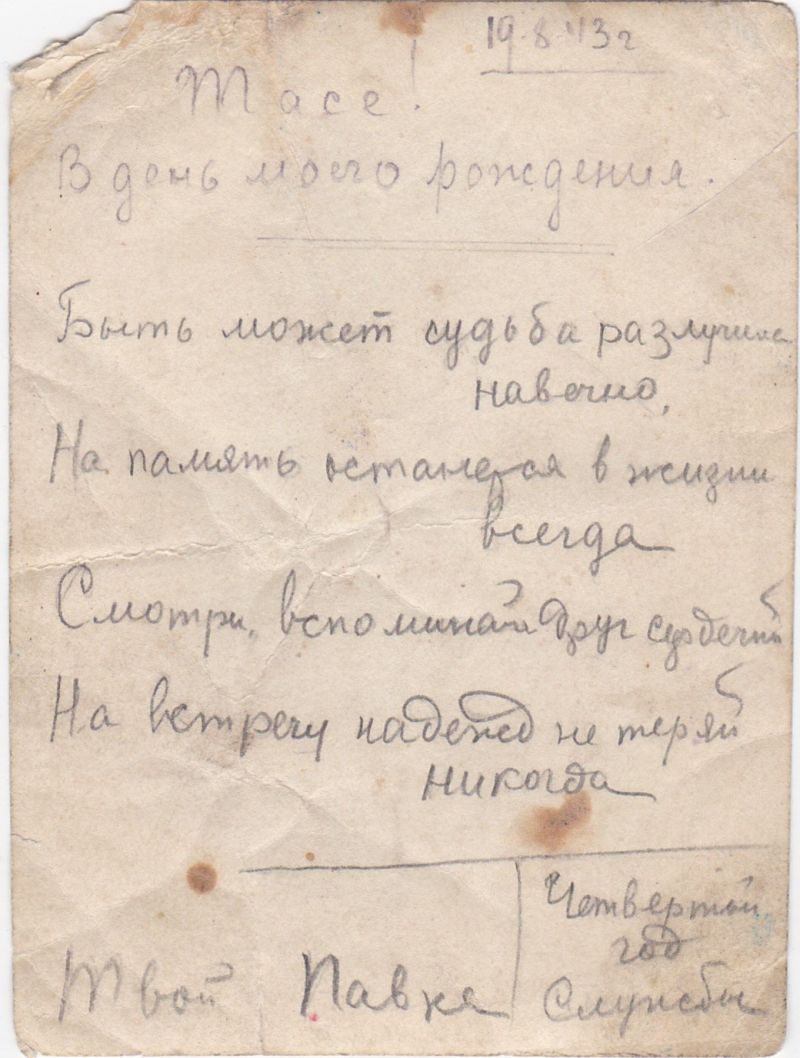 19.8.43 г
Тасе!
В день моего рождения.
Быть может судьба разлучила
навечно,
На память останется в жизни
всегда
Смотри, вспоминай друг сердечный
На встречу надежд не теряй
никогда
Четвертый
год
Службы
Твой Павка